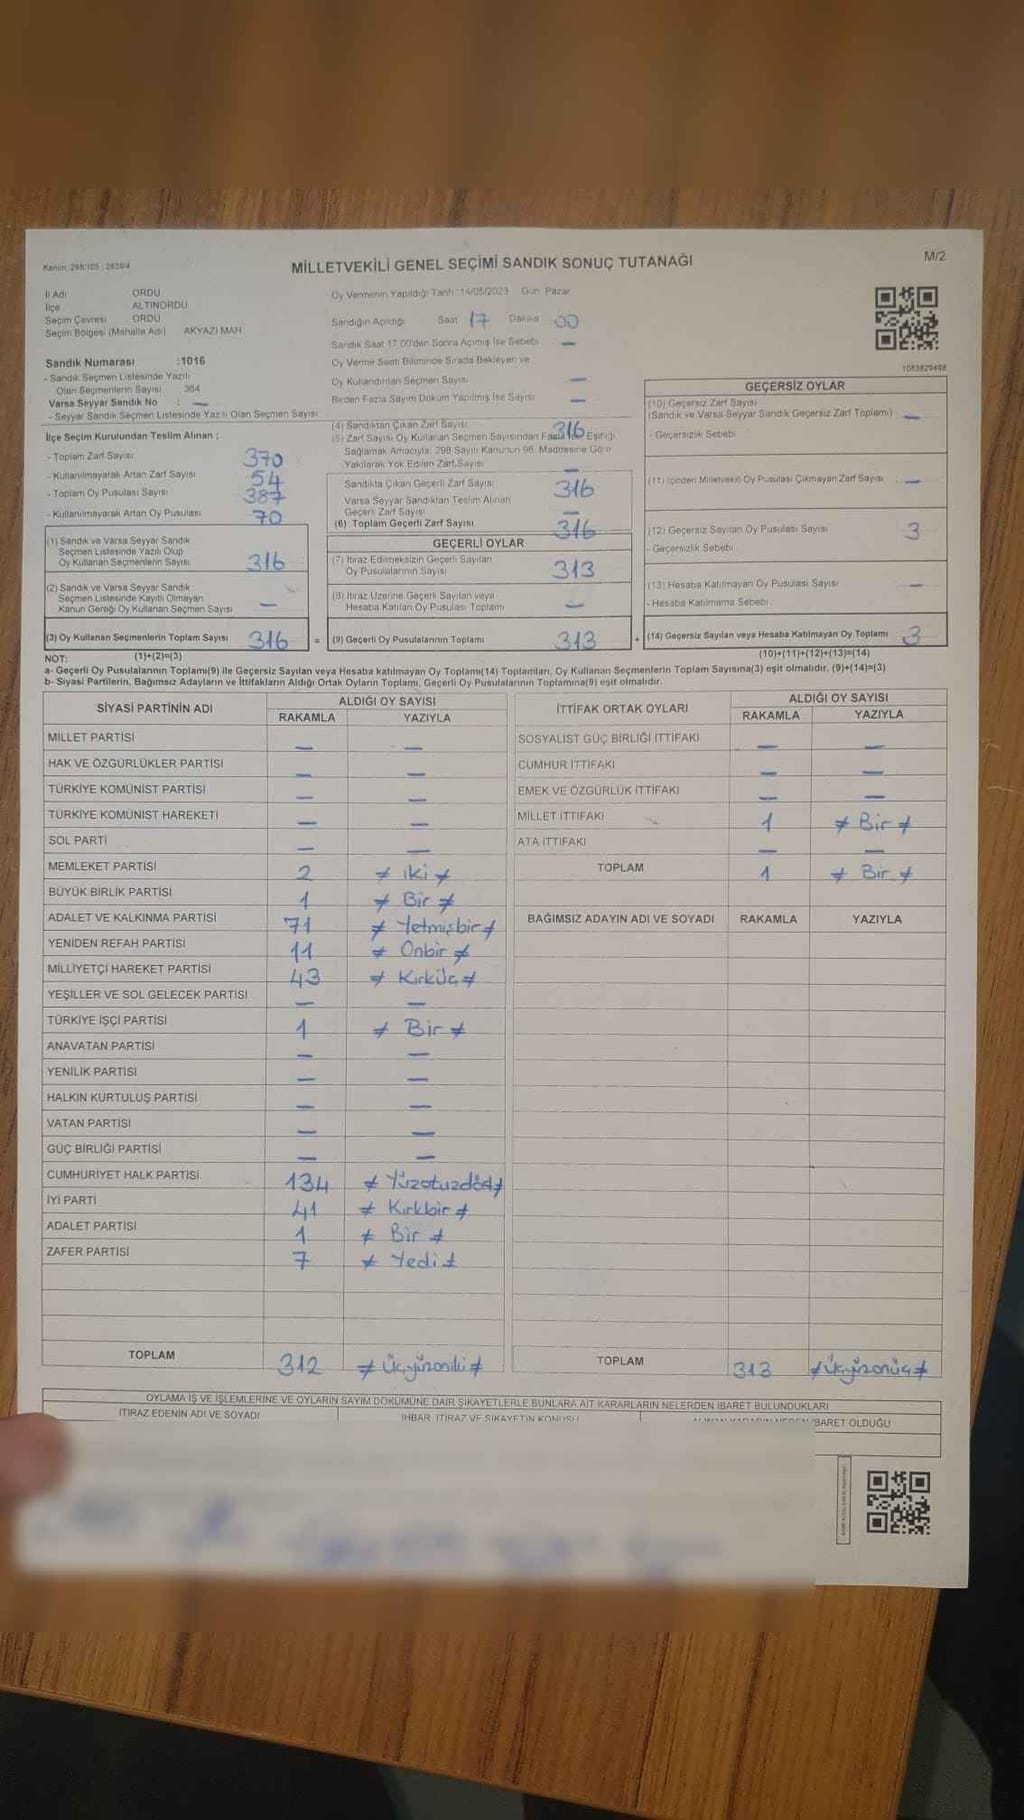 Kanun: 298/105 - 2839/4
MİLLETVEKİLİ GENEL SEÇİMİ SANDIK SONUÇ TUTANAĞI
M/2
İl Adı ORDU
İlçe ALTINORDU
Seçim Çevresi ORDU
Seçim Bölgesi (Mahalle Adı) AKYAZI MAH.
Oy Vermenin Yapıldığı Tarih :14/05/2023 Gün: Pazar
Sandığın Açıldığı Saat 17 Dakika 00
Sandık Saat 17:00'den Sonra Açılmış İse Sebebi —
Oy Verme Saati Bitiminde Sırada Bekleyen ve
Oy Kullandırılan Seçmen Sayısı —
Birden Fazla Sayım Döküm Yapılmış İse Sayısı —
1083829498
Sandık Numarası :1016
- Sandık Seçmen Listesinde Yazılı
Olan Seçmenlerin Sayısı 364
Varsa Seyyar Sandık No : —
- Seyyar Sandık Seçmen Listesinde Yazılı Olan Seçmen Sayısı
İlçe Seçim Kurulundan Teslim Alınan ;
- Toplam Zarf Sayısı 370
- Kullanılmayarak Artan Zarf Sayısı 54
- Toplam Oy Pusulası Sayısı 387
- Kullanılmayarak Artan Oy Pusulası 70
(1) Sandık ve Varsa Seyyar Sandık
Seçmen Listesinde Yazılı Olup
Oy Kullanan Seçmenlerin Sayısı 316
(2) Sandık ve Varsa Seyyar Sandık
Seçmen Listesinde Kayıtlı Olmayan
Kanun Gereği Oy Kullanan Seçmen Sayısı —
(3) Oy Kullanan Seçmenlerin Toplam Sayısı 316 =
(4) Sandıktan Çıkan Zarf Sayısı 316
(5) Zarf Sayısı Oy Kullanan Seçmen Sayısından Fazla ise Eşitliği
Sağlamak Amacıyla, 298 Sayılı Kanunun 98. Maddesine Göre
Yakılarak Yok Edilen Zarf Sayısı —
Sandıkta Çıkan Geçerli Zarf Sayısı 316
Varsa Seyyar Sandıktan Teslim Alınan
Geçerli Zarf Sayısı —
(6) Toplam Geçerli Zarf Sayısı 316
GEÇERLİ OYLAR
(7) İtiraz Edilmeksizin Geçerli Sayılan
Oy Pusulalarının Sayısı 313
(8) İtiraz Üzerine Geçerli Sayılan veya
Hesaba Katılan Oy Pusulası Toplamı —
(9) Geçerli Oy Pusulalarının Toplamı 313 +
GEÇERSİZ OYLAR
(10) Geçersiz Zarf Sayısı
(Sandık ve Varsa Seyyar Sandık Geçersiz Zarf Toplamı) —
- Geçersizlik Sebebi
(11) İçinden Milletvekili Oy Pusulası Çıkmayan Zarf Sayısı —
(12) Geçersiz Sayılan Oy Pusulası Sayısı 3
- Geçersizlik Sebebi
(13) Hesaba Katılmayan Oy Pusulası Sayısı —
- Hesaba Katılmama Sebebi
(14) Geçersiz Sayılan veya Hesaba Katılmayan Oy Toplamı 3
NOT: (1)+(2)=(3) (10)+(11)+(12)+(13)=(14)
a- Geçerli Oy Pusulalarının Toplamı(9) ile Geçersiz Sayılan veya Hesaba katılmayan Oy Toplamı(14) Toplamları, Oy Kullanan Seçmenlerin Toplam Sayısına(3) eşit olmalıdır. (9)+(14)=(3)
b- Siyasi Partilerin, Bağımsız Adayların ve İttifakların Aldığı Ortak Oyların Toplamı, Geçerli Oy Pusulalarının Toplamına(9) eşit olmalıdır.
SİYASİ PARTİNİN ADI ALDIĞI OY SAYISI
RAKAMLA YAZIYLA
MİLLET PARTİSİ — —
HAK VE ÖZGÜRLÜKLER PARTİSİ — —
TÜRKİYE KOMÜNİST PARTİSİ — —
TÜRKİYE KOMÜNİST HAREKETİ — —
SOL PARTİ — —
MEMLEKET PARTİSİ 2 ≠ iki ≠
BÜYÜK BİRLİK PARTİSİ 1 ≠ Bir ≠
ADALET VE KALKINMA PARTİSİ 71 ≠ Yetmişbir ≠
YENİDEN REFAH PARTİSİ 11 ≠ Onbir ≠
MİLLİYETÇİ HAREKET PARTİSİ 43 ≠ Kırküç ≠
YEŞİLLER VE SOL GELECEK PARTİSİ — —
TÜRKİYE İŞÇİ PARTİSİ 1 ≠ Bir ≠
ANAVATAN PARTİSİ — —
YENİLİK PARTİSİ — —
HALKIN KURTULUŞ PARTİSİ — —
VATAN PARTİSİ — —
GÜÇ BİRLİĞİ PARTİSİ — —
CUMHURİYET HALK PARTİSİ 134 ≠ Yüzotuzdört ≠
İYİ PARTİ 41 ≠ Kırkbir ≠
ADALET PARTİSİ 1 ≠ Bir ≠
ZAFER PARTİSİ 7 ≠ Yedi ≠
TOPLAM 312 ≠ Üçyüzoniki ≠
İTTİFAK ORTAK OYLARI ALDIĞI OY SAYISI
RAKAMLA YAZIYLA
SOSYALİST GÜÇ BİRLİĞİ İTTİFAKI — —
CUMHUR İTTİFAKI — —
EMEK VE ÖZGÜRLÜK İTTİFAKI — —
MİLLET İTTİFAKI 1 ≠ Bir ≠
ATA İTTİFAKI — —
TOPLAM 1 ≠ Bir ≠
BAĞIMSIZ ADAYIN ADI VE SOYADI RAKAMLA YAZIYLA
TOPLAM 313 ≠ Üçyüzonüç ≠
OYLAMA İŞ VE İŞLEMLERİNE VE OYLARIN SAYIM DÖKÜMÜNE DAİR ŞİKAYETLERLE BUNLARA AİT KARARLARIN NELERDEN İBARET BULUNDUKLARI
İTİRAZ EDENİN ADI VE SOYADI İHBAR, İTİRAZ VE ŞİKAYETİN KONUSU İBARET OLDUĞU